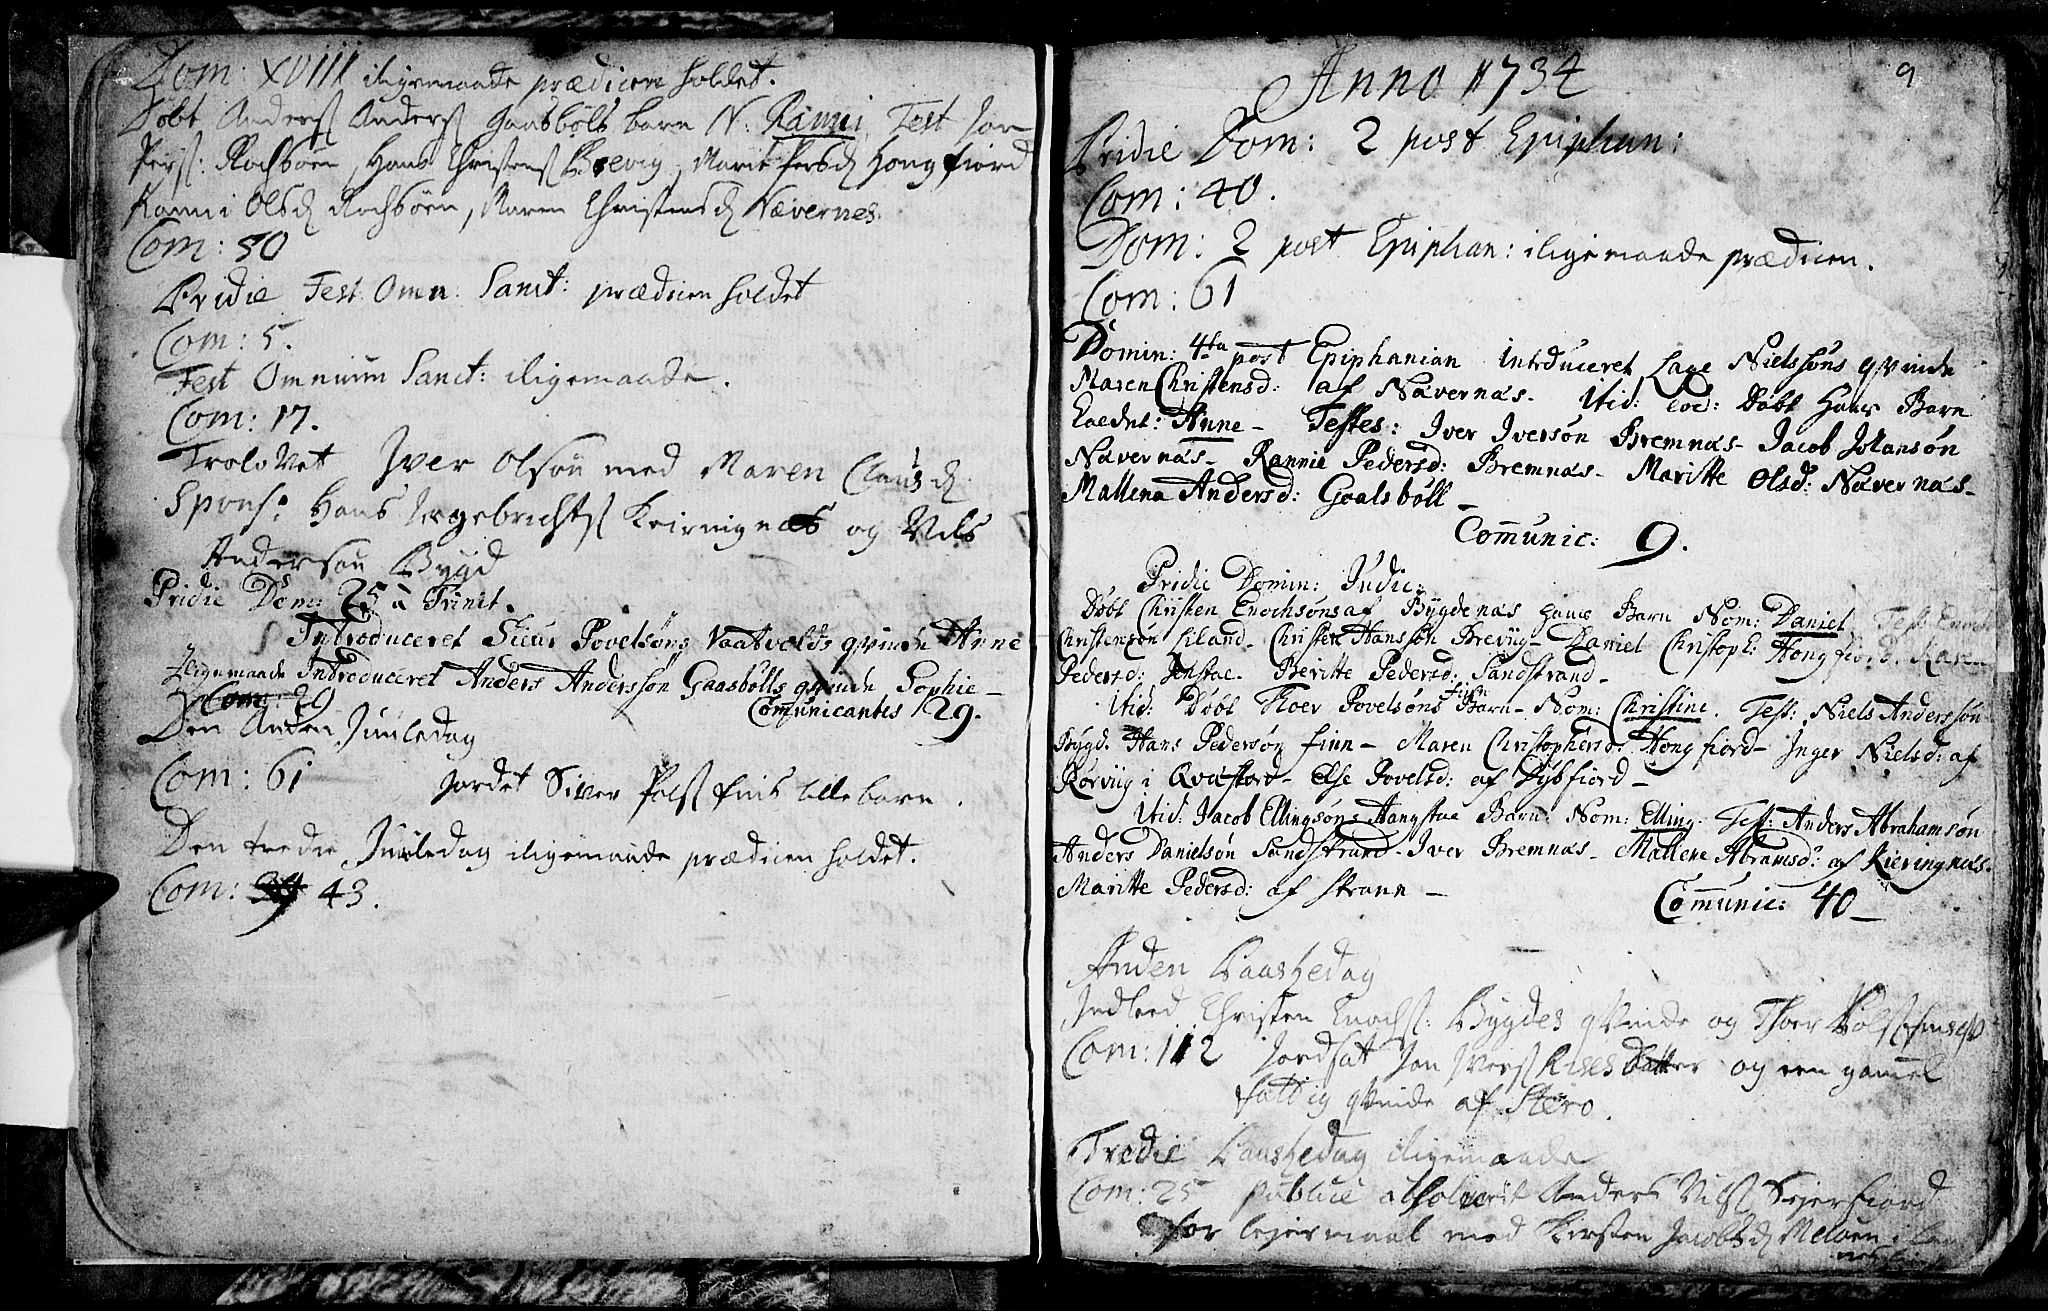 Dom: XVIII iligemaade prædicen holdet.
Døbt Anders Anders Gaasbøls barn N: Ranni, Test Jon
Pers: Rochsøen, Hans Christens Brevig, Marit Persd Hongfiord
Ranni Olsd Rochsøen, Maren Christensd Nævernes.
Com: 50
Pridie Fest Omn: Sanct: prædicen holdet
Com: 5.
Fest Omnium Sanct: iligemaade.
Com: 17.
Trolovet Iver Olsøn med Maren Clausd
Spons: Hans Ingebrichts Keiringnes og Nils
Andersøn Bygd
Pridie Dom: 25 a Trinit.
Introduceret Sieur Povelsøns Vaatvolds qvinde Anne
Iligemaade Introduceret Anders Anderssøn Gaasbølls qvinde Sophie
Com: 29 Comunicantes 29.
Den Anden Juuledag
Com: 61 Jordet Siver Pols Fins lille barn.
Den tredie Juuledag iligemaade prædicen holdet.
Com: 43.
9
Anno 1734
Pridie Dom: 2 post Epiphan:
Com: 40.
Dom: 2 post Epiphan: iligemaade prædicen.
Com: 61
Domin: 4ta post Epiphanian Introduceret Lage Nielssøns qvinde
Maren Christensd: af Navernas. Itid: eod: Døbt Hans Barn
kaldet: Anne - Testes: Iver Iversøn Bremnas - Jacob Johansøn
Navernas - Rannie Pedersd: Bremnas - Maritte Olsd: Navernas -
Mallena Andersd: Goalsbøll -
Comunic: 9.
Pridie Domin: Judic:
Døbt Christen Enochsøns af Bygdenas hans Barn Nom: Daniel Test: Enoch
Christensøn Eiland - Christen Hanssøn Breviig - Daniel Christoph: Hongfiord. Karen
Pedersd: Jenstae. Beritte Pedersd: Sandstrand -
Itid: Døbt Thoer Povelsøns Finn Barn - Nom: Christine. Test: Niels Anderssøn
Bygd. Hans Pedersøn Finn - Maren Christophersd: Hongfiord - Inger Nielsd: af
Rørviig i Qvæfiord - Else Povelsd: af Dybfiord -
Itid: Jacob Ellingsøns Hangstae Barn: Nom: Elling. Test: Anders Abrahamsøn
Anders Danielsøn Sandstrand - Iver Bremnas - Mallene Abramsd: af Kieringnas.
Maritte Pedersd: af Strann -
Comunic: 40 -
Anden Paaskedag
Indleed Christen Enochs: Bygdes qvinde og Thoer Pols Fins qv
Com: 112 Jordsat Jon Ivers Rises Datter og een gamel
fattig qvinde af Stero.
Tredie Paaskedag iligemaade
Com: 25 publice absolverit Anders Nils Sejerfiord
for lejermaal med Kirsten Jacobsd Meløen i